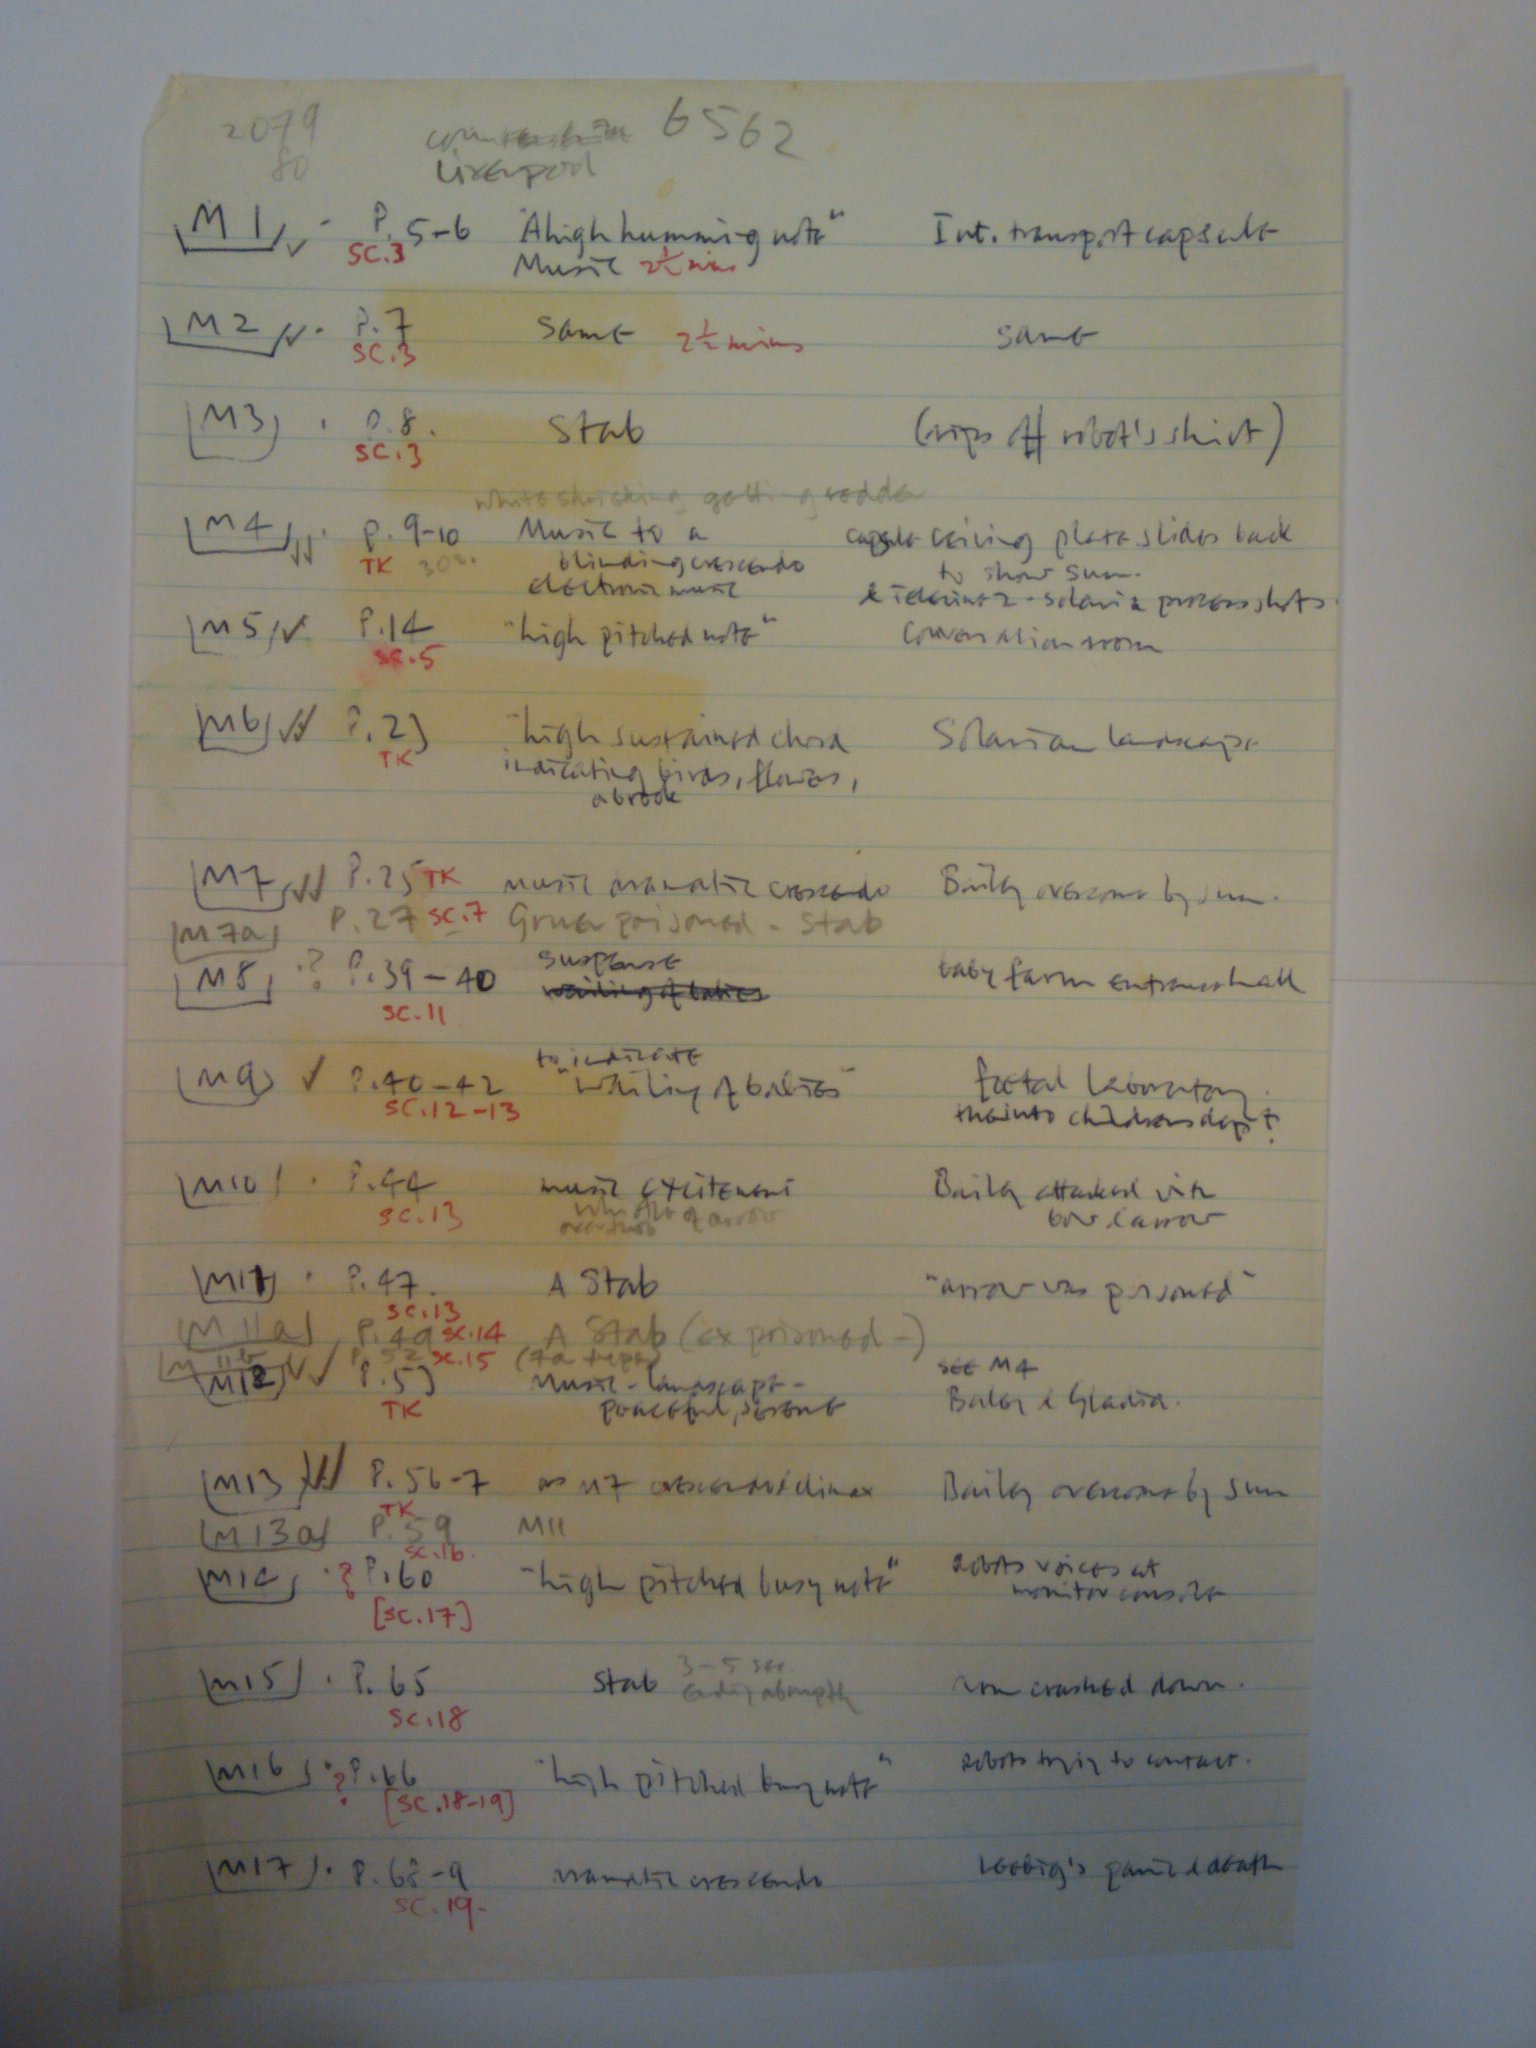 2079 6562
80 Liverpool
M1 P. 5-6 "A high humming note" Int. transport capsule
SC.3 Music 2½ mins
M2 P.7 Same 2½ mins same
SC.3
M3 P.8. Stab (rips off robot's shirt)
SC.3
white shrieking getting redder
M4 P. 9-10 Music to a capsule ceiling plate slides back
TK blinding crescendo to show sun.
electronic music & Solaria process shots.
M5 P.14 "high pitched note" Conversation room
SC.5
M6 P.23 "high sustained chord Solarian landscape
TK indicating birds, flowers,
a brook
M7 P.25 TK music dramatic crescendo Bailey overcome by sun.
M7a P.27 SC.7 Gruer poisoned - Stab
M8 ? P.39-40 suspense baby farm entrance hall
SC.11 wailing of babies
M9 P.40-42 to indicate "wailing of babies" foetal laboratory.
SC.12-13 then into childrens dept.
M10 P.44 music excitement Bailey attacked with
SC.13 of arrow bow & arrow
M11 P.47. A Stab "arrow was poisoned"
SC.13
M11a P.49 SC.14 A Stab (ex poisoned -)
M11b P.52 SC.15 (7a rept)
M12 P.53 Music - landscape - see M4
TK peaceful, serene Bailey & Gladia.
M13 P.56-7 as M7 crescendo/climax Bailey overcome by sun
TK
M13a P.59 M11
SC.16.
M14 ? P.60 "high pitched busy note" Robots voices at
[SC.17] monitor console
M15 P. 65 Stab 3-5 sec room crashed down.
SC.18 ending abruptly
M16 ? P.66 "high pitched busy note" Robots trying to contact.
[SC.18-19]
M17 P.68-9 dramatic crescendo Leebig's panic & death
SC.19.